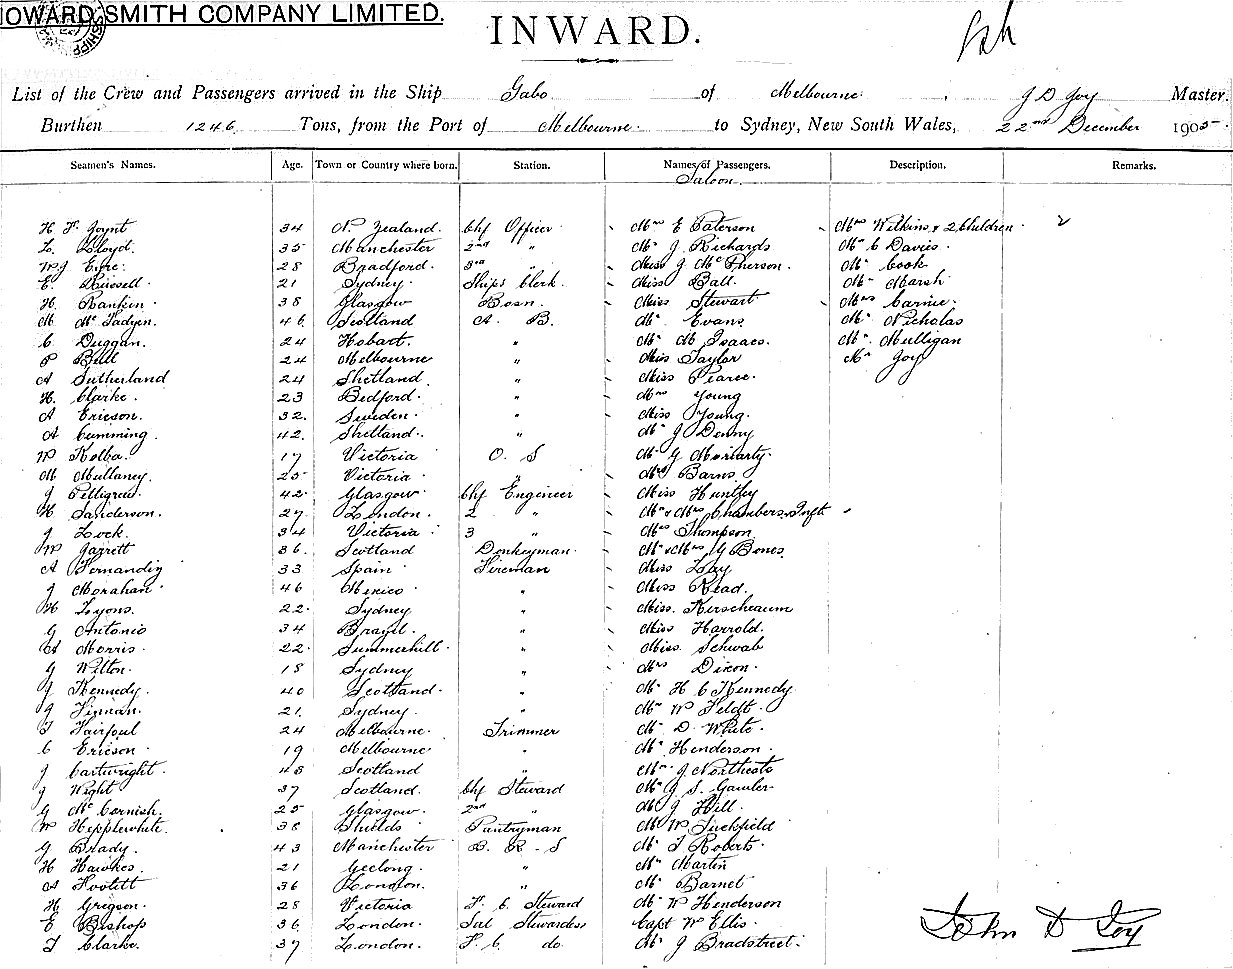 HOWARD SMITH COMPANY LIMITED.
INWARD.
List of the Crew and Passengers arrived in the Ship Gabo of Melbourne, J D Joy Master.
Burthen 1246 Tons, from the Port of Melbourne to Sydney, New South Wales, 22nd December 1905
Seamen's Names. Age. Town or Country where born. Station. Names of Passengers. Description. Remarks.
Saloon
H F Joynt 34 N. Zealand. Chf Officer Mrs E Paterson Mrs Wilkins & 2 Children
L. Lloyd. 35 Manchester 2nd " Mr J Richards Mr C Davies.
W J Eyre. 28 Bradford. 3rd " Miss J McPherson. Mr Cook
E. Russell. 21 Sydney. Ships Clerk. Miss Ball. Mr Marsh
H. Rankin 38 Glasgow Bosn. Miss Stewart Mrs Carnie.
M McFadyen. 46 Scotland A. B. Mr Evans Mr Nicholas
C. Duggan. 24 Hobart. " Mr M Isaacs. Mr Mulligan
P Bull 24 Melbourne " Miss Taylor Mr Joy
A Sutherland 24 Shetland. " Miss Pearce.
H. Clarke. 23 Bedford. " Mrs Young
A Ericson. 32. Sweden. " Miss Young.
A Cumming. 42. Shetland. " Mr J Denny
W Kolba. 17 Victoria O. S Mr J Moriarty.
M Mullaney. 25 Victoria " Mrs Barns.
J Pettigrew. 42. Glasgow. Chf Engineer Miss Huntley
H Sanderson. 27. London. 2 " Mr & Mrs Chambers & Inft
J Lock. 34 Victoria 3 " Mrs Thompson
W Garrett 36. Scotland Donkeyman. Mr & Mrs G Bones
A Fernandiz 33 Spain Fireman Miss Lay
J Monahan 46 Mexico " Miss Read.
H Lyons. 22. Sydney " Miss. Kerscheaum
G Antonio 34 Brazil. " Miss Harrold.
A Morris. 22. Summerhill. " Miss. Schwab
G Wilton. 18 Sydney " Mrs Dixon.
J Kennedy. 40 Scotland. " Mr H C Kennedy
J Finnan. 21. Sydney. " Mr W Feldt.
T Fairfoul 24 Melbourne. Trimmer Mr D. White.
C Ericson 19 Melbourne " Mr Henderson.
J Cartwright. 48 Scotland " Mr J Northcote
J Wight 37 Scotland. Chf Steward Mr J S. Gawler
G McCarnish. 25 Glasgow. 2nd " Mr J Hill.
W Hepplewhite. 38 Shields Pantryman Mr W Tuckfield
G Brady. 43 Manchester B. R. S Mr T Roberts.
H Hawkes. 21 Geelong. " Mr Martin
A 36 London. " Mr Barnet
H Gregson. 28 Victoria F. C. Steward Mr W Henderson
E Bishop 36 London. Sal Stewardess Capt W Ellis.
T Clarke. 37 London. F. C. do. Mr J Bradstreet.
John D Joy